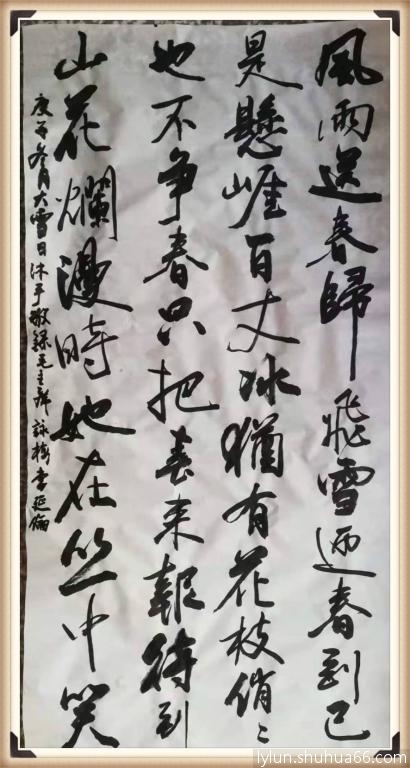 風雨送春歸飛雪迎春到已
是懸崖百丈冰猶有花枝俏〻
也不争春只把春来報待到
山花爛漫時她在丛中笑
庚子冬月大雪日沐手敬録毛主席詠梅李延倫
lylun.shuhua66.com